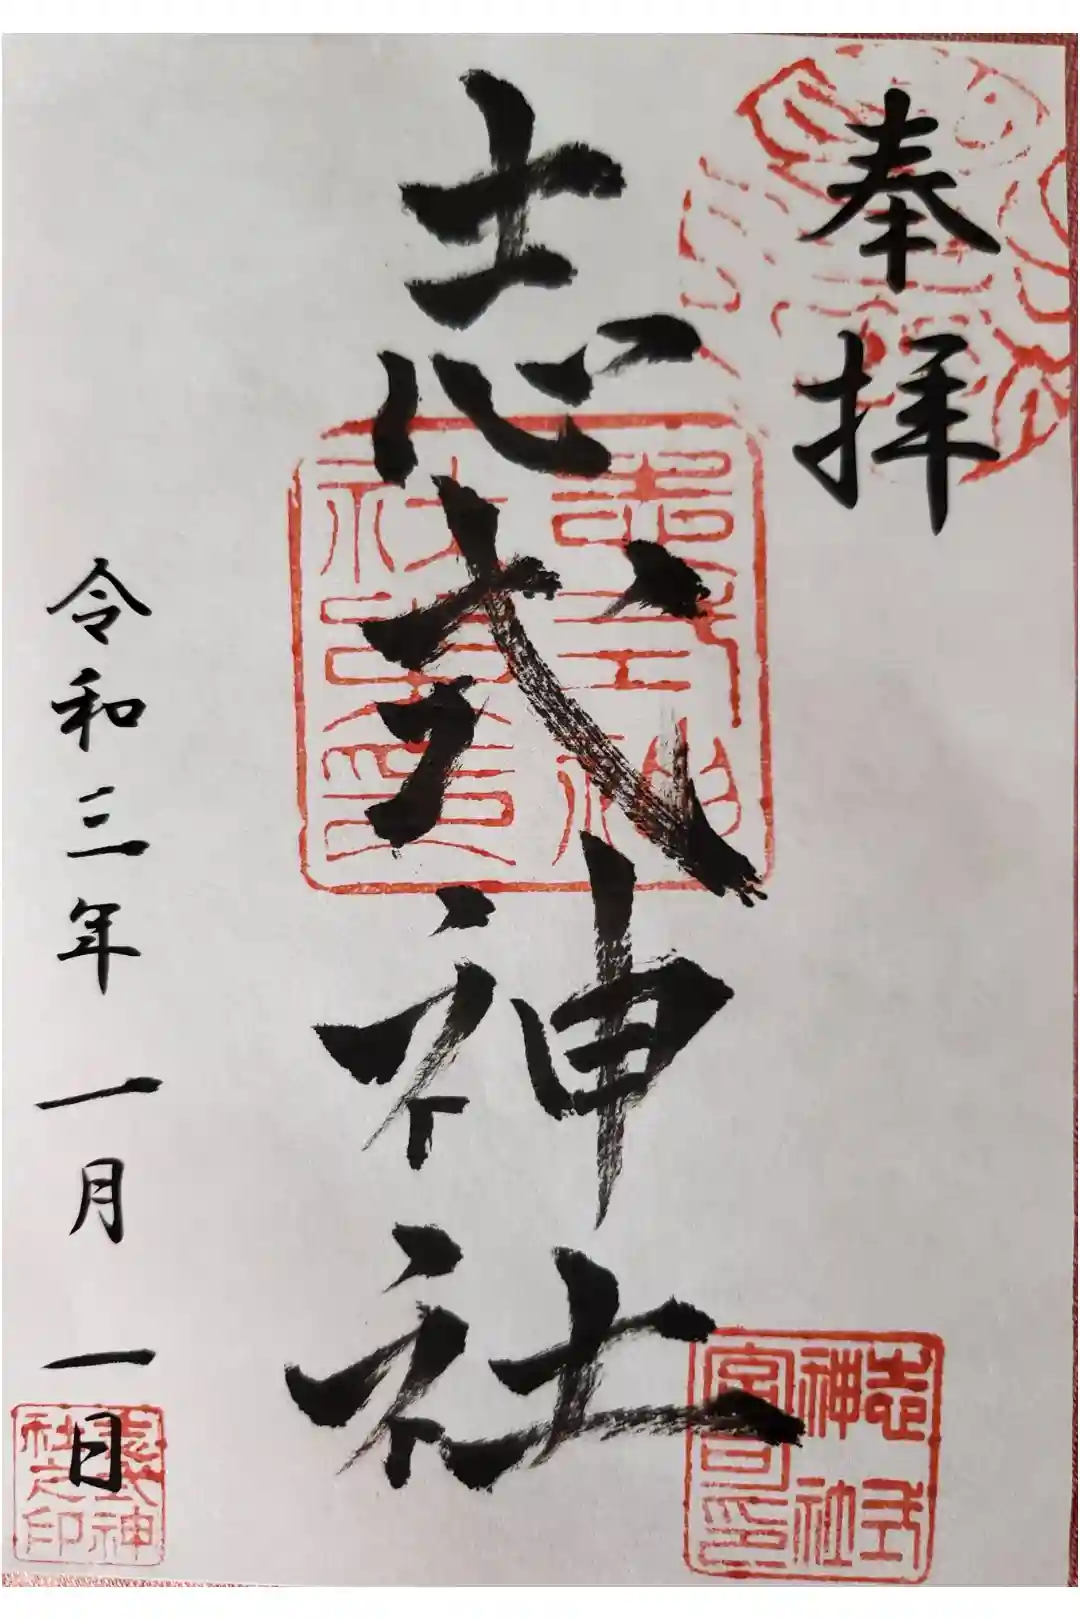 奉拝
志式神社
令和三年一月一日
志式神社之印
志式神社宮司印
志式神社之印